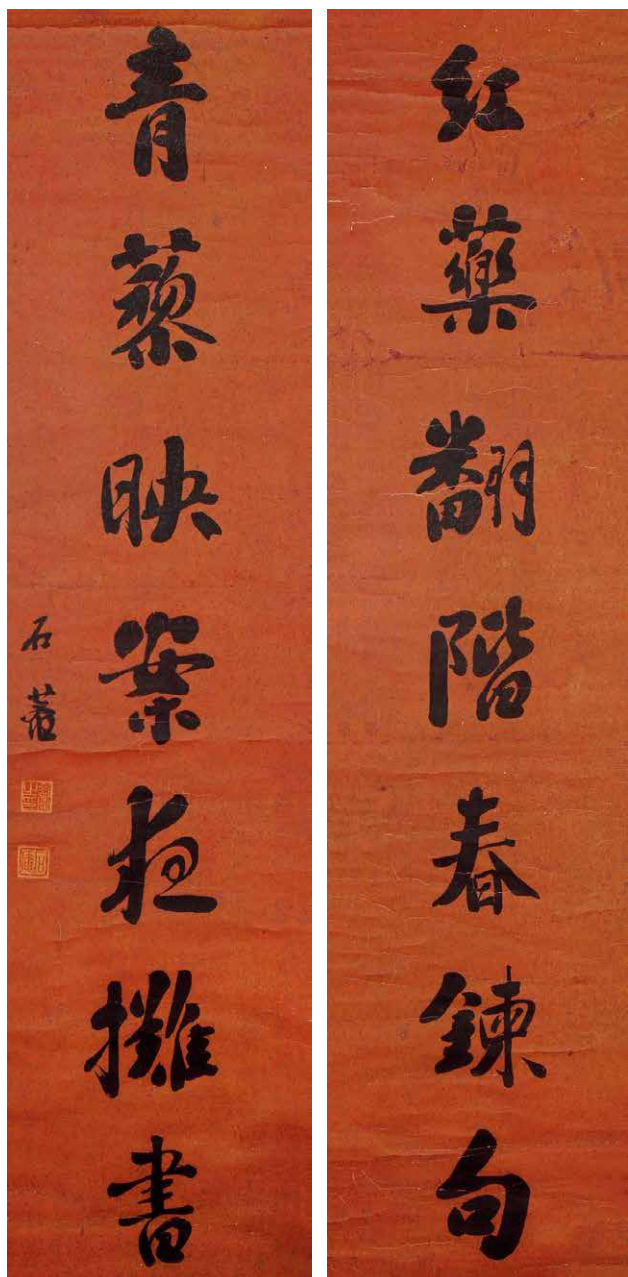 紅藥翻階春鍊句
青藜映案夜攤書
石菴